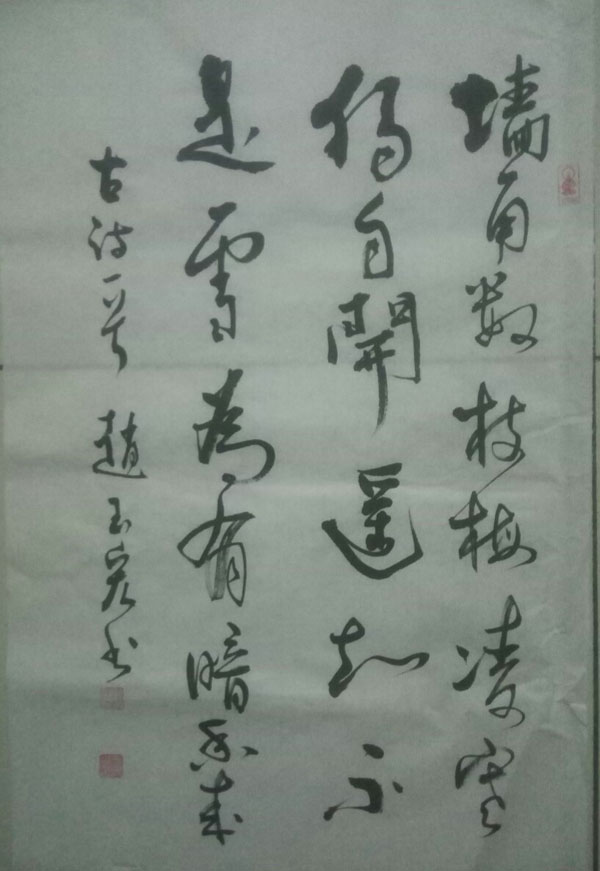 墙角数枝梅凌寒
独自開遥知不
是雪為有暗香来
古诗一首 趙玉宏书